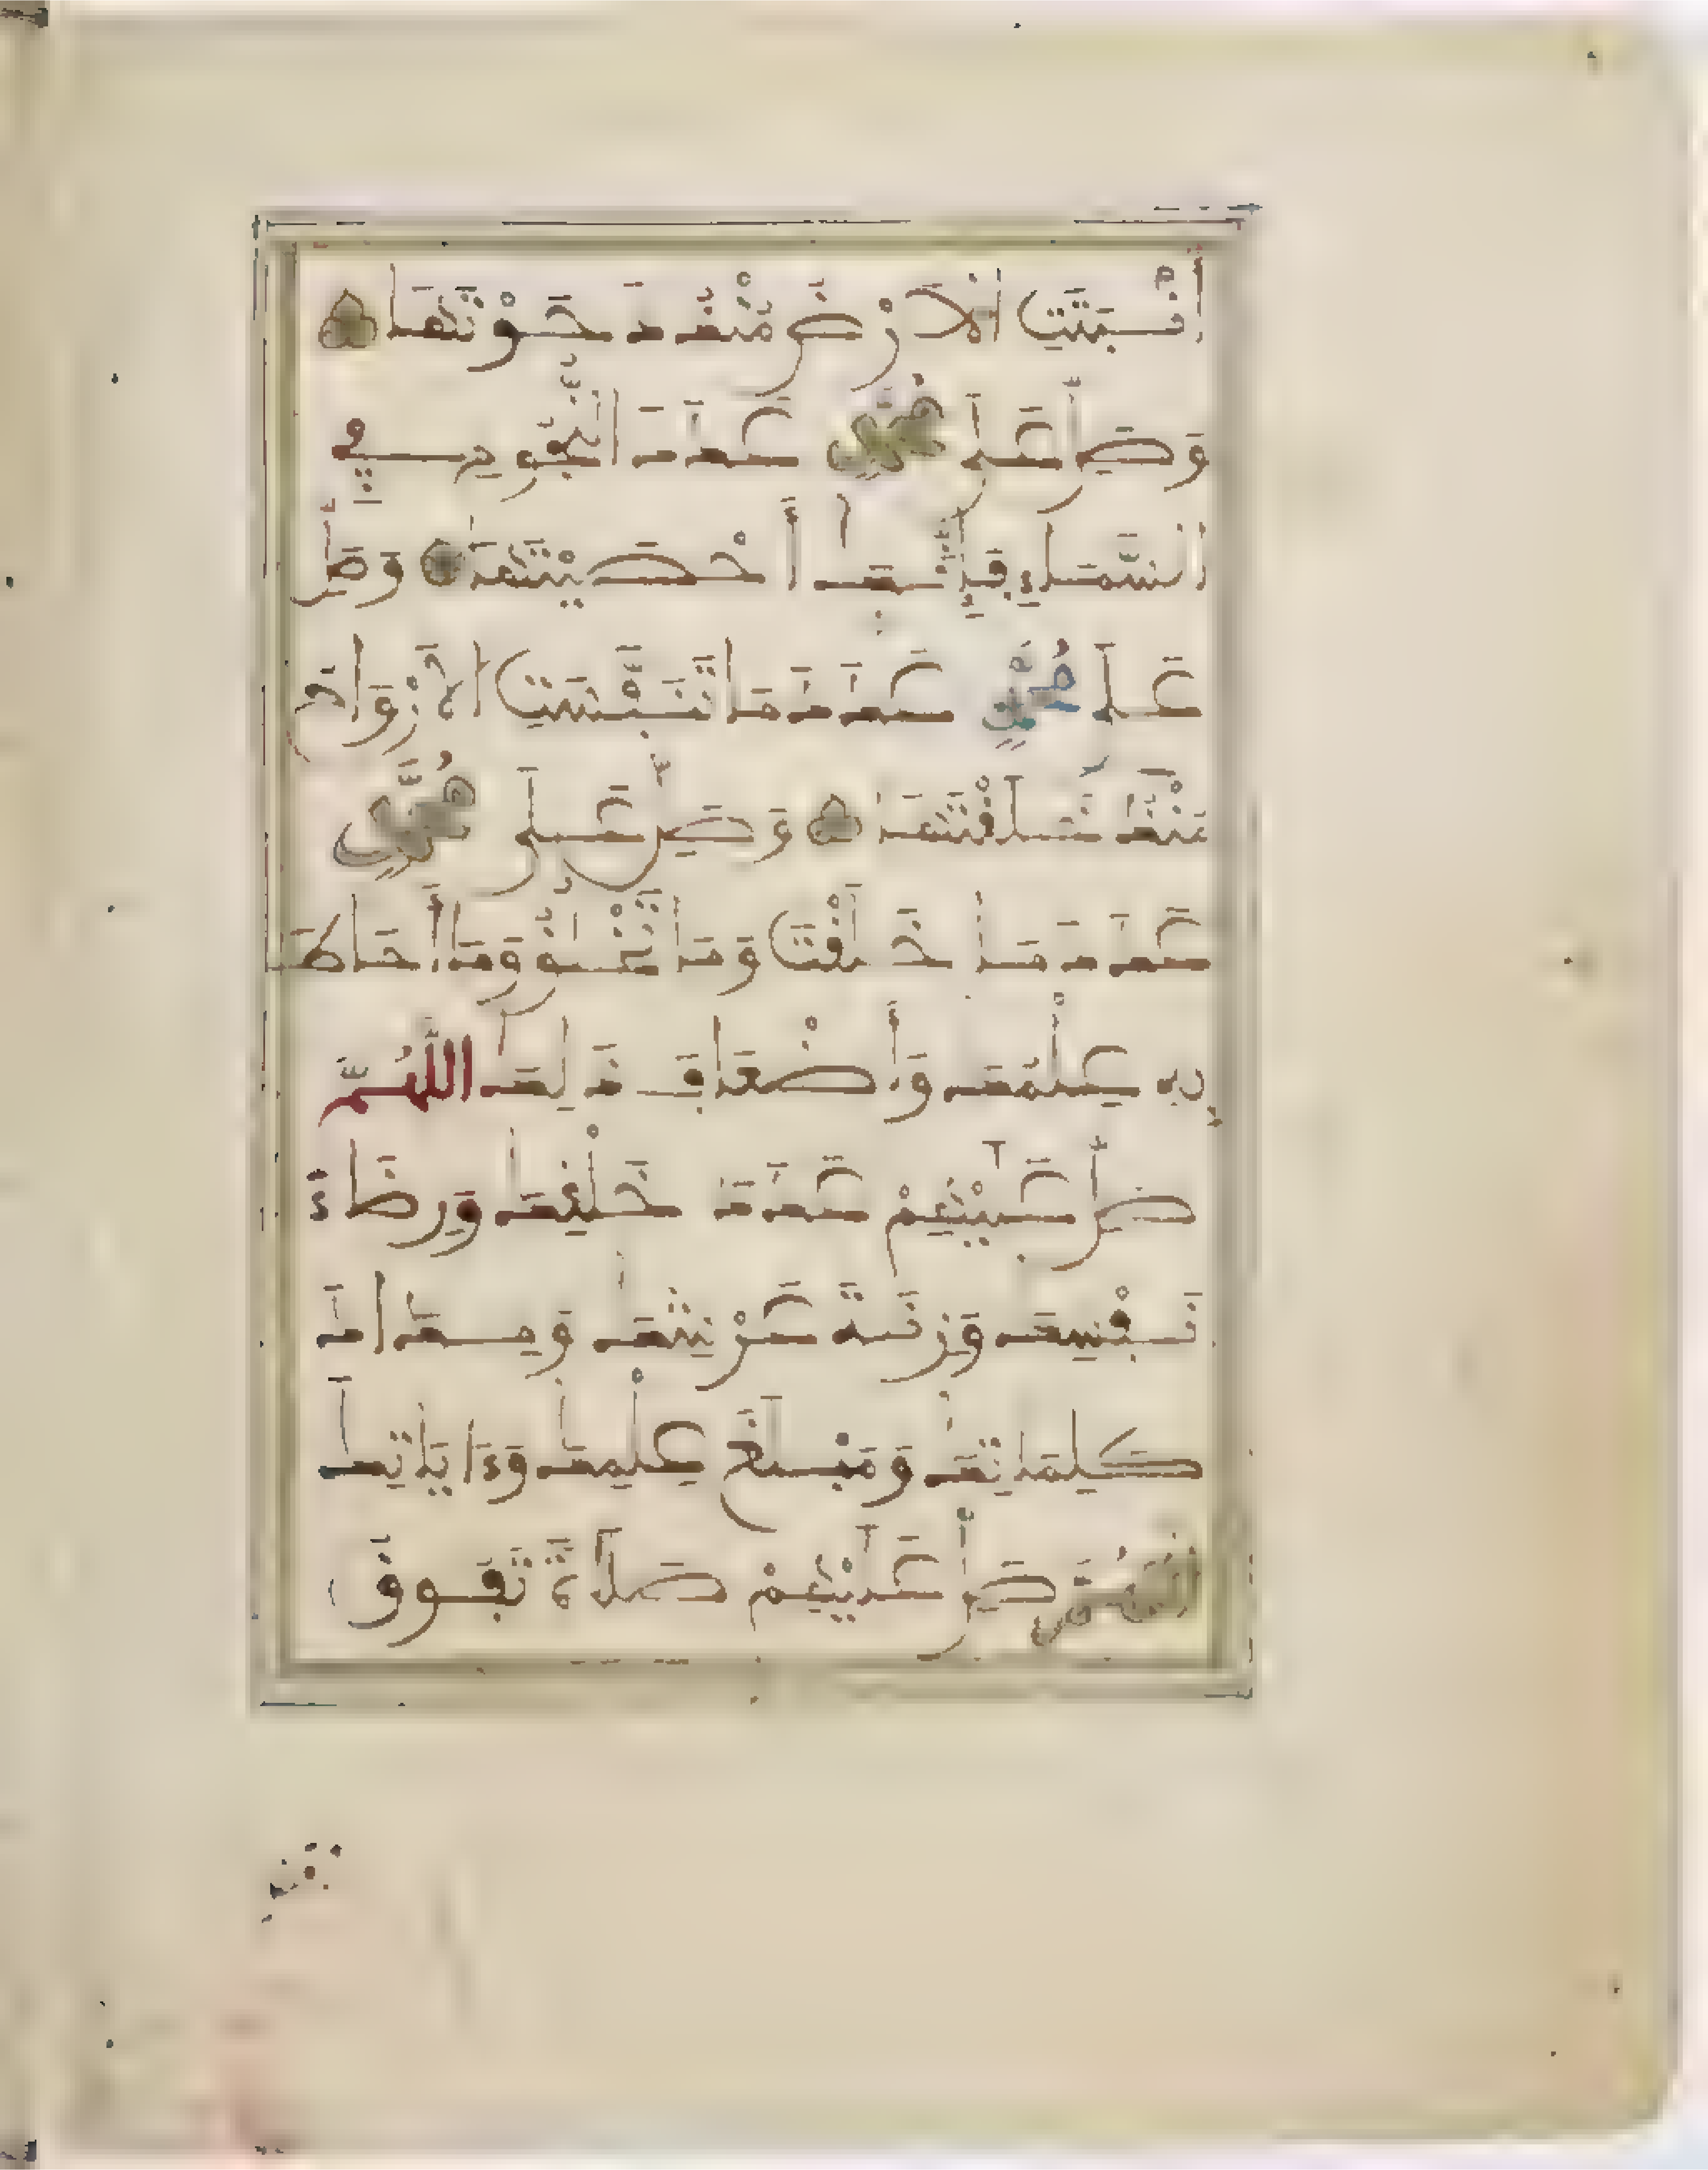 أَنْبَتَتِ الْأَرْضُ مُنْذُ دَحَوْتَهَا
وَصَلِّ عَلَى مُحَمَّدٍ عَدَدَ النُّجُومِ فِي
السَّمَاءِ فَإِنَّكَ أَحْصَيْتَهَا وَصَلِّ
عَلَى مُحَمَّدٍ عَدَدَ مَا تَنَفَّسَتِ الْأَرْوَاحُ
مُنْذُ خَلَقْتَهَا وَصَلِّ عَلَى مُحَمَّدٍ
عَدَدَ مَا خَلَقْتَ وَمَا تَخْلُقُ وَمَا أَحَاطَ
بِهِ عِلْمُكَ وَأَضْعَافَ ذَلِكَ اللَّهُمَّ
صَلِّ عَلَيْهِمْ عَدَدَ خَلْقِكَ وَرِضَاءَ
نَفْسِكَ وَزِنَةَ عَرْشِكَ وَمِدَادَ
كَلِمَاتِكَ وَمَبْلَغَ عِلْمِكَ وَءَايَاتِكَ
اللَّهُمَّ صَلِّ عَلَيْهِمْ صَلَاةً تَفُوقُ